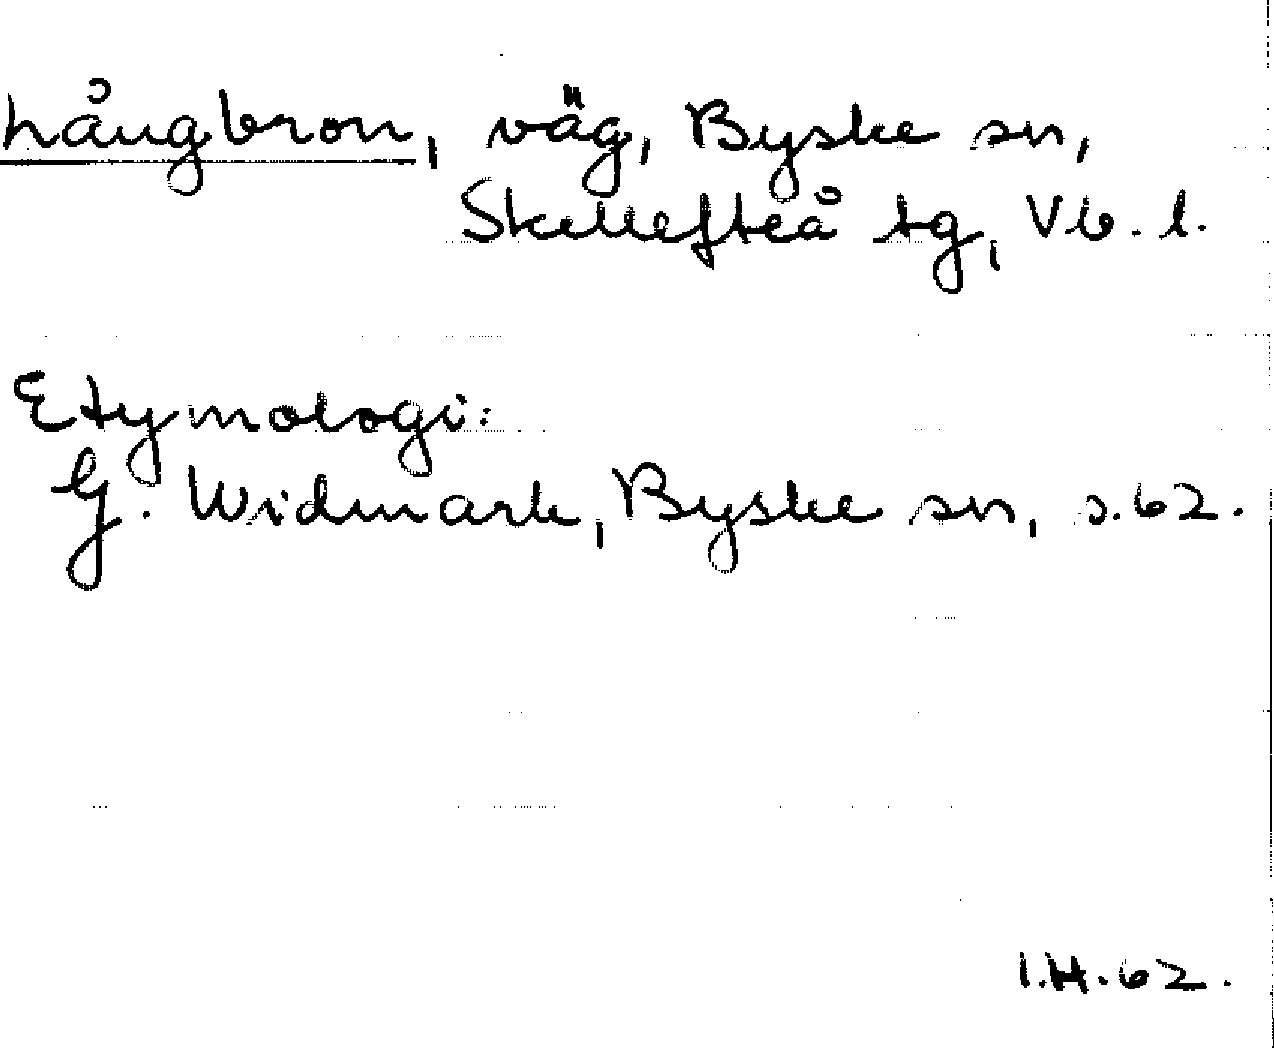 Långbron, väg, Byske sn,
Skellefteå tg, Vb. l.
Etymologi:
G. Widmark, Byske sn, s.62.
I.H.62.